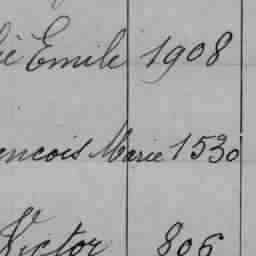 Emile 1908
ancois Marie 1530
Victor 806